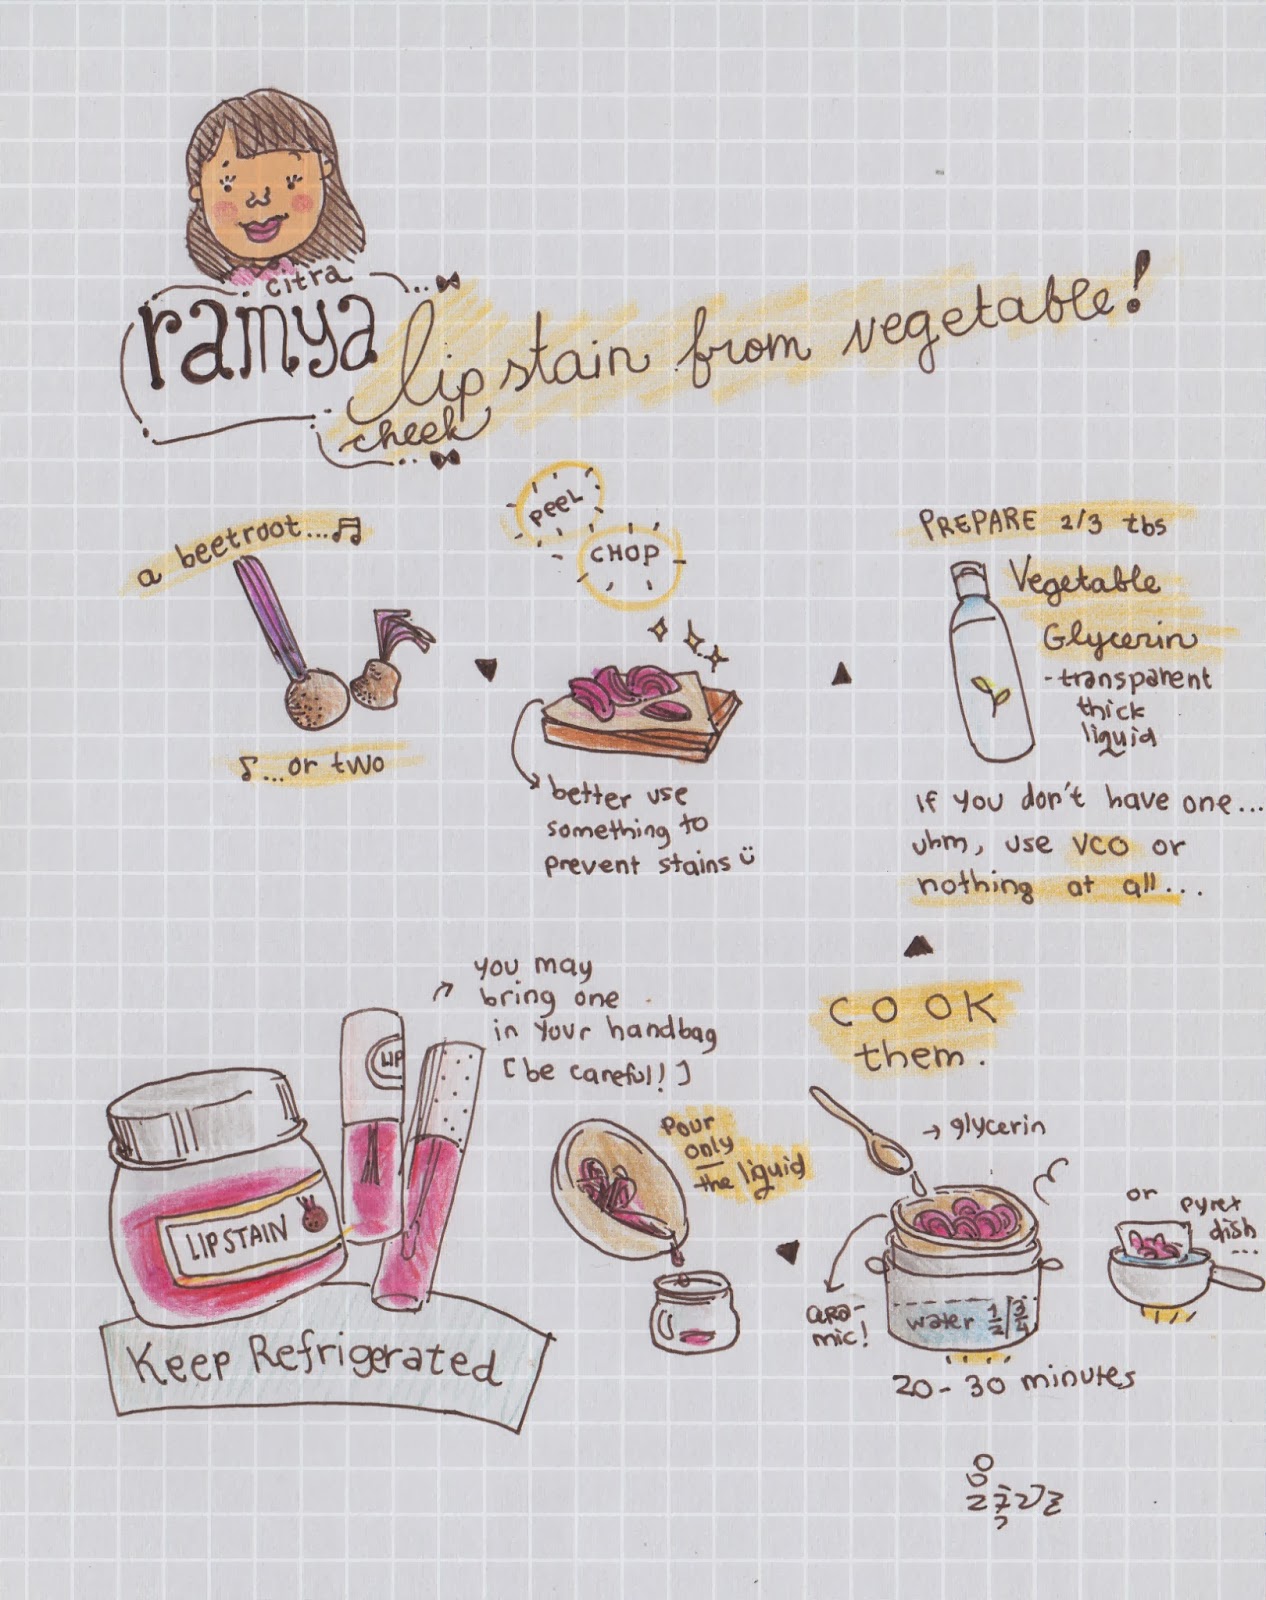 citra
ramya
lip stain from vegetable!
cheek
a beetroot...
...or two
PEEL
CHOP
better use
something to
prevent stains
PREPARE 2/3 tbs
Vegetable
Glycerin
-transparent
thick
liquid
if you don't have one...
uhm, use VCO or
nothing at all...
COOK
them.
glycerin
cera-
mic!
water 1/2 3/4
20-30 minutes
or pyrex
dish
...
Pour
only
the liquid
you may
bring one
in your handbag
[be careful!]
LIP
LIPSTAIN
Keep Refrigerated